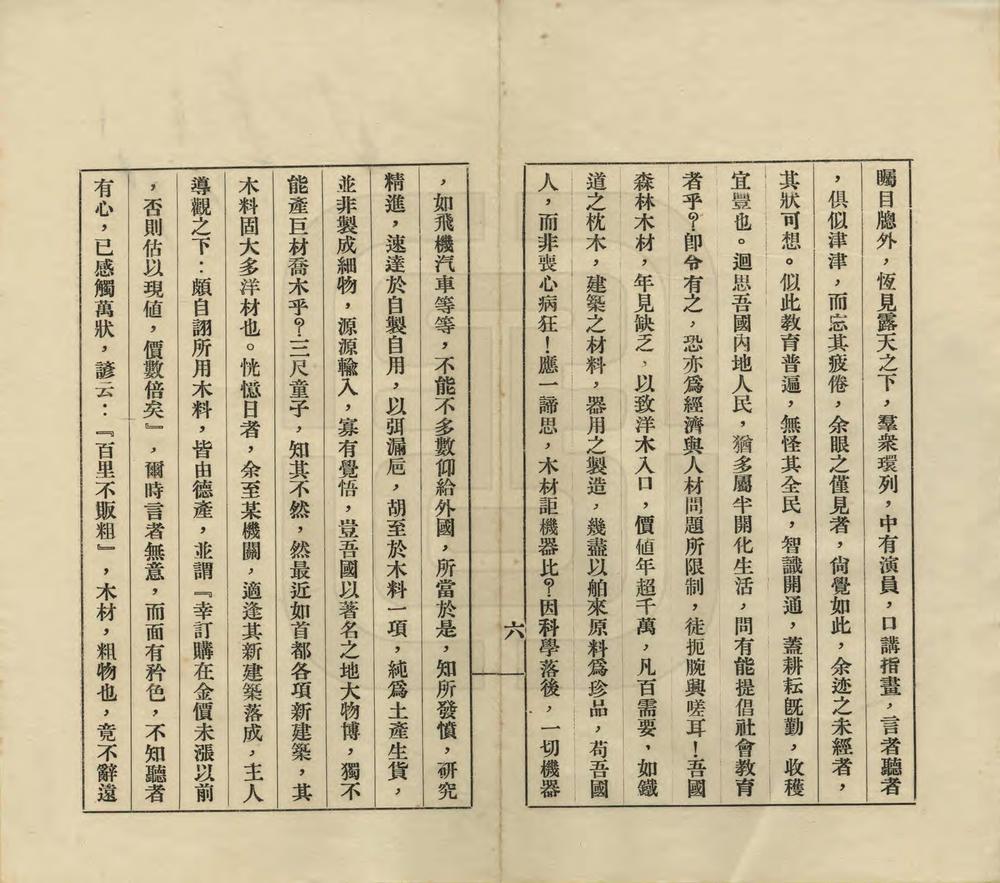 矚目牕外，恆見露天之下，羣衆環列，中有演員，口講指畫，言者聽者
，俱似津津，而忘其疲倦，余眼之僅見者，尙覺如此，余迹之未經者，
其狀可想。似此敎育普遍，無怪其全民，智識開通，蓋耕耘旣勤，收穫
宜豐也。迴思吾國內地人民，猶多屬半開化生活，問有能提倡社會敎育
者乎？卽令有之，恐亦爲經濟與人材問題所限制，徒扼腕興嗟耳！吾國
森林木材，年見缺乏，以致洋木入口，價値年超千萬，凡百需要，如鐵
道之枕木，建築之材料，器用之製造，幾盡以舶來原料爲珍品，苟吾國
人，而非喪心病狂！應一諦思，木材詎機器比？因科學落後，一切機器
六
，如飛機汽車等等，不能不多數仰給外國，所當於是，知所發憤，研究
精進，速達於自製自用，以弭漏巵，胡至於木料一項，純爲土產生貨，
並非製成細物，源源輸入，寡有覺悟，豈吾國以著名之地大物博，獨不
能產巨材喬木乎？三尺童子，知其不然，然最近如首都各項新建築，其
木料固大多洋材也。恍憶日者，余至某機關，適逢其新建築落成，主人
導觀之下：頗自詡所用木料，皆由德產，並謂『幸訂購在金價未漲以前
，否則估以現値，價數倍矣』，爾時言者無意，而面有矜色，不知聽者
有心，已感觸萬狀，諺云：『百里不販粗』，木材，粗物也，竟不辭遠